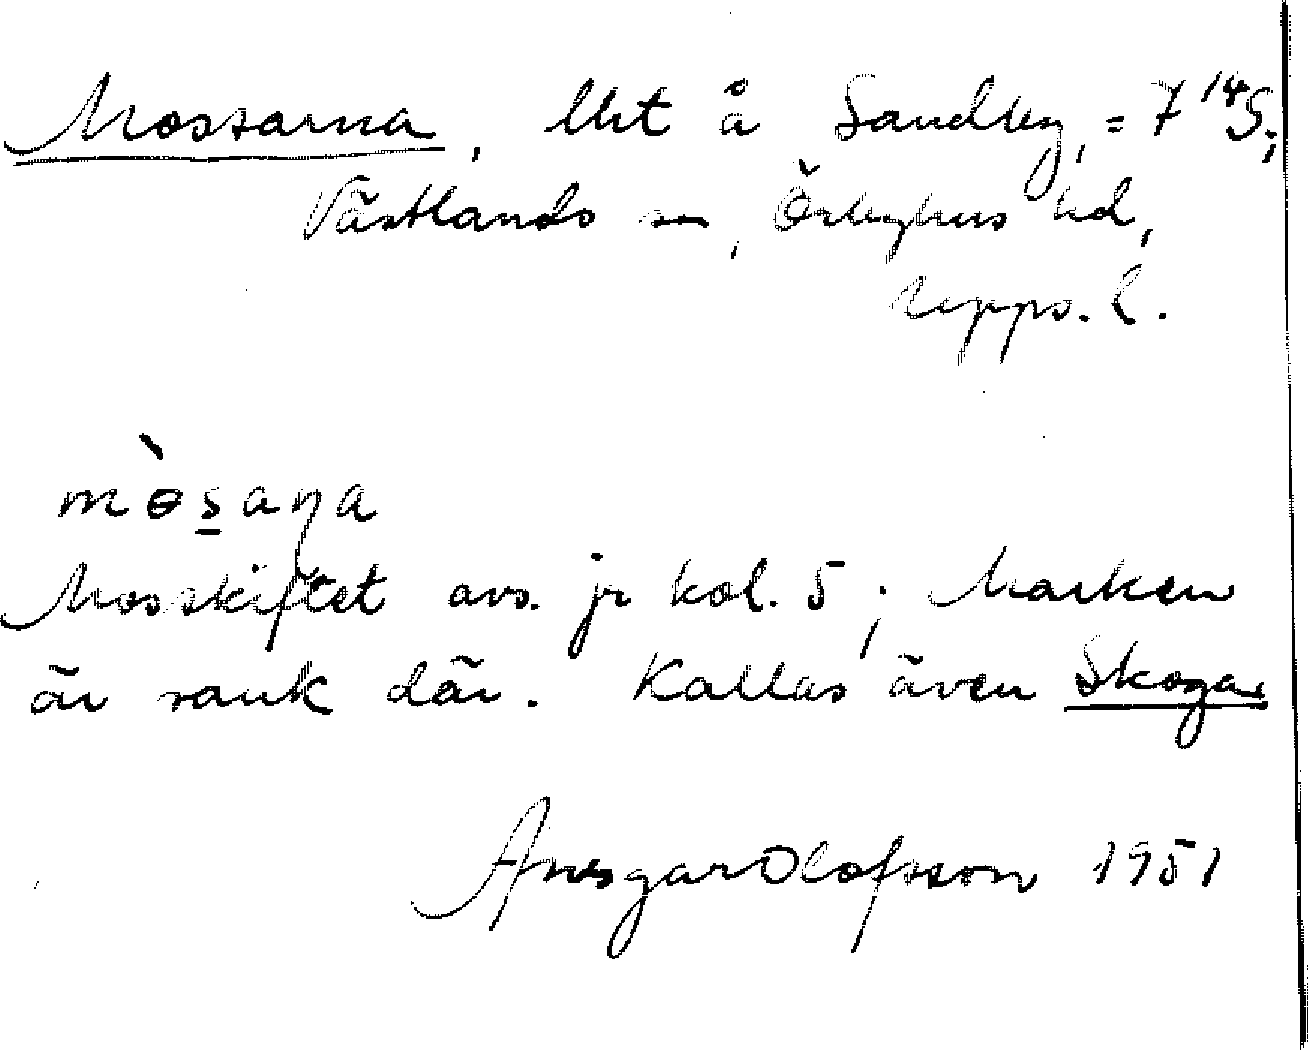 Mossarna, lht å Sandby, = 7 14 S;
Västlands sn, Örbyhus hd,
Upps. l.
mɵ̀s̲aɳa
Mosskiftet avs. jr kol. 5; Marken
är sank där. Kallas även Skogar
Ansgar Olofsson 1951